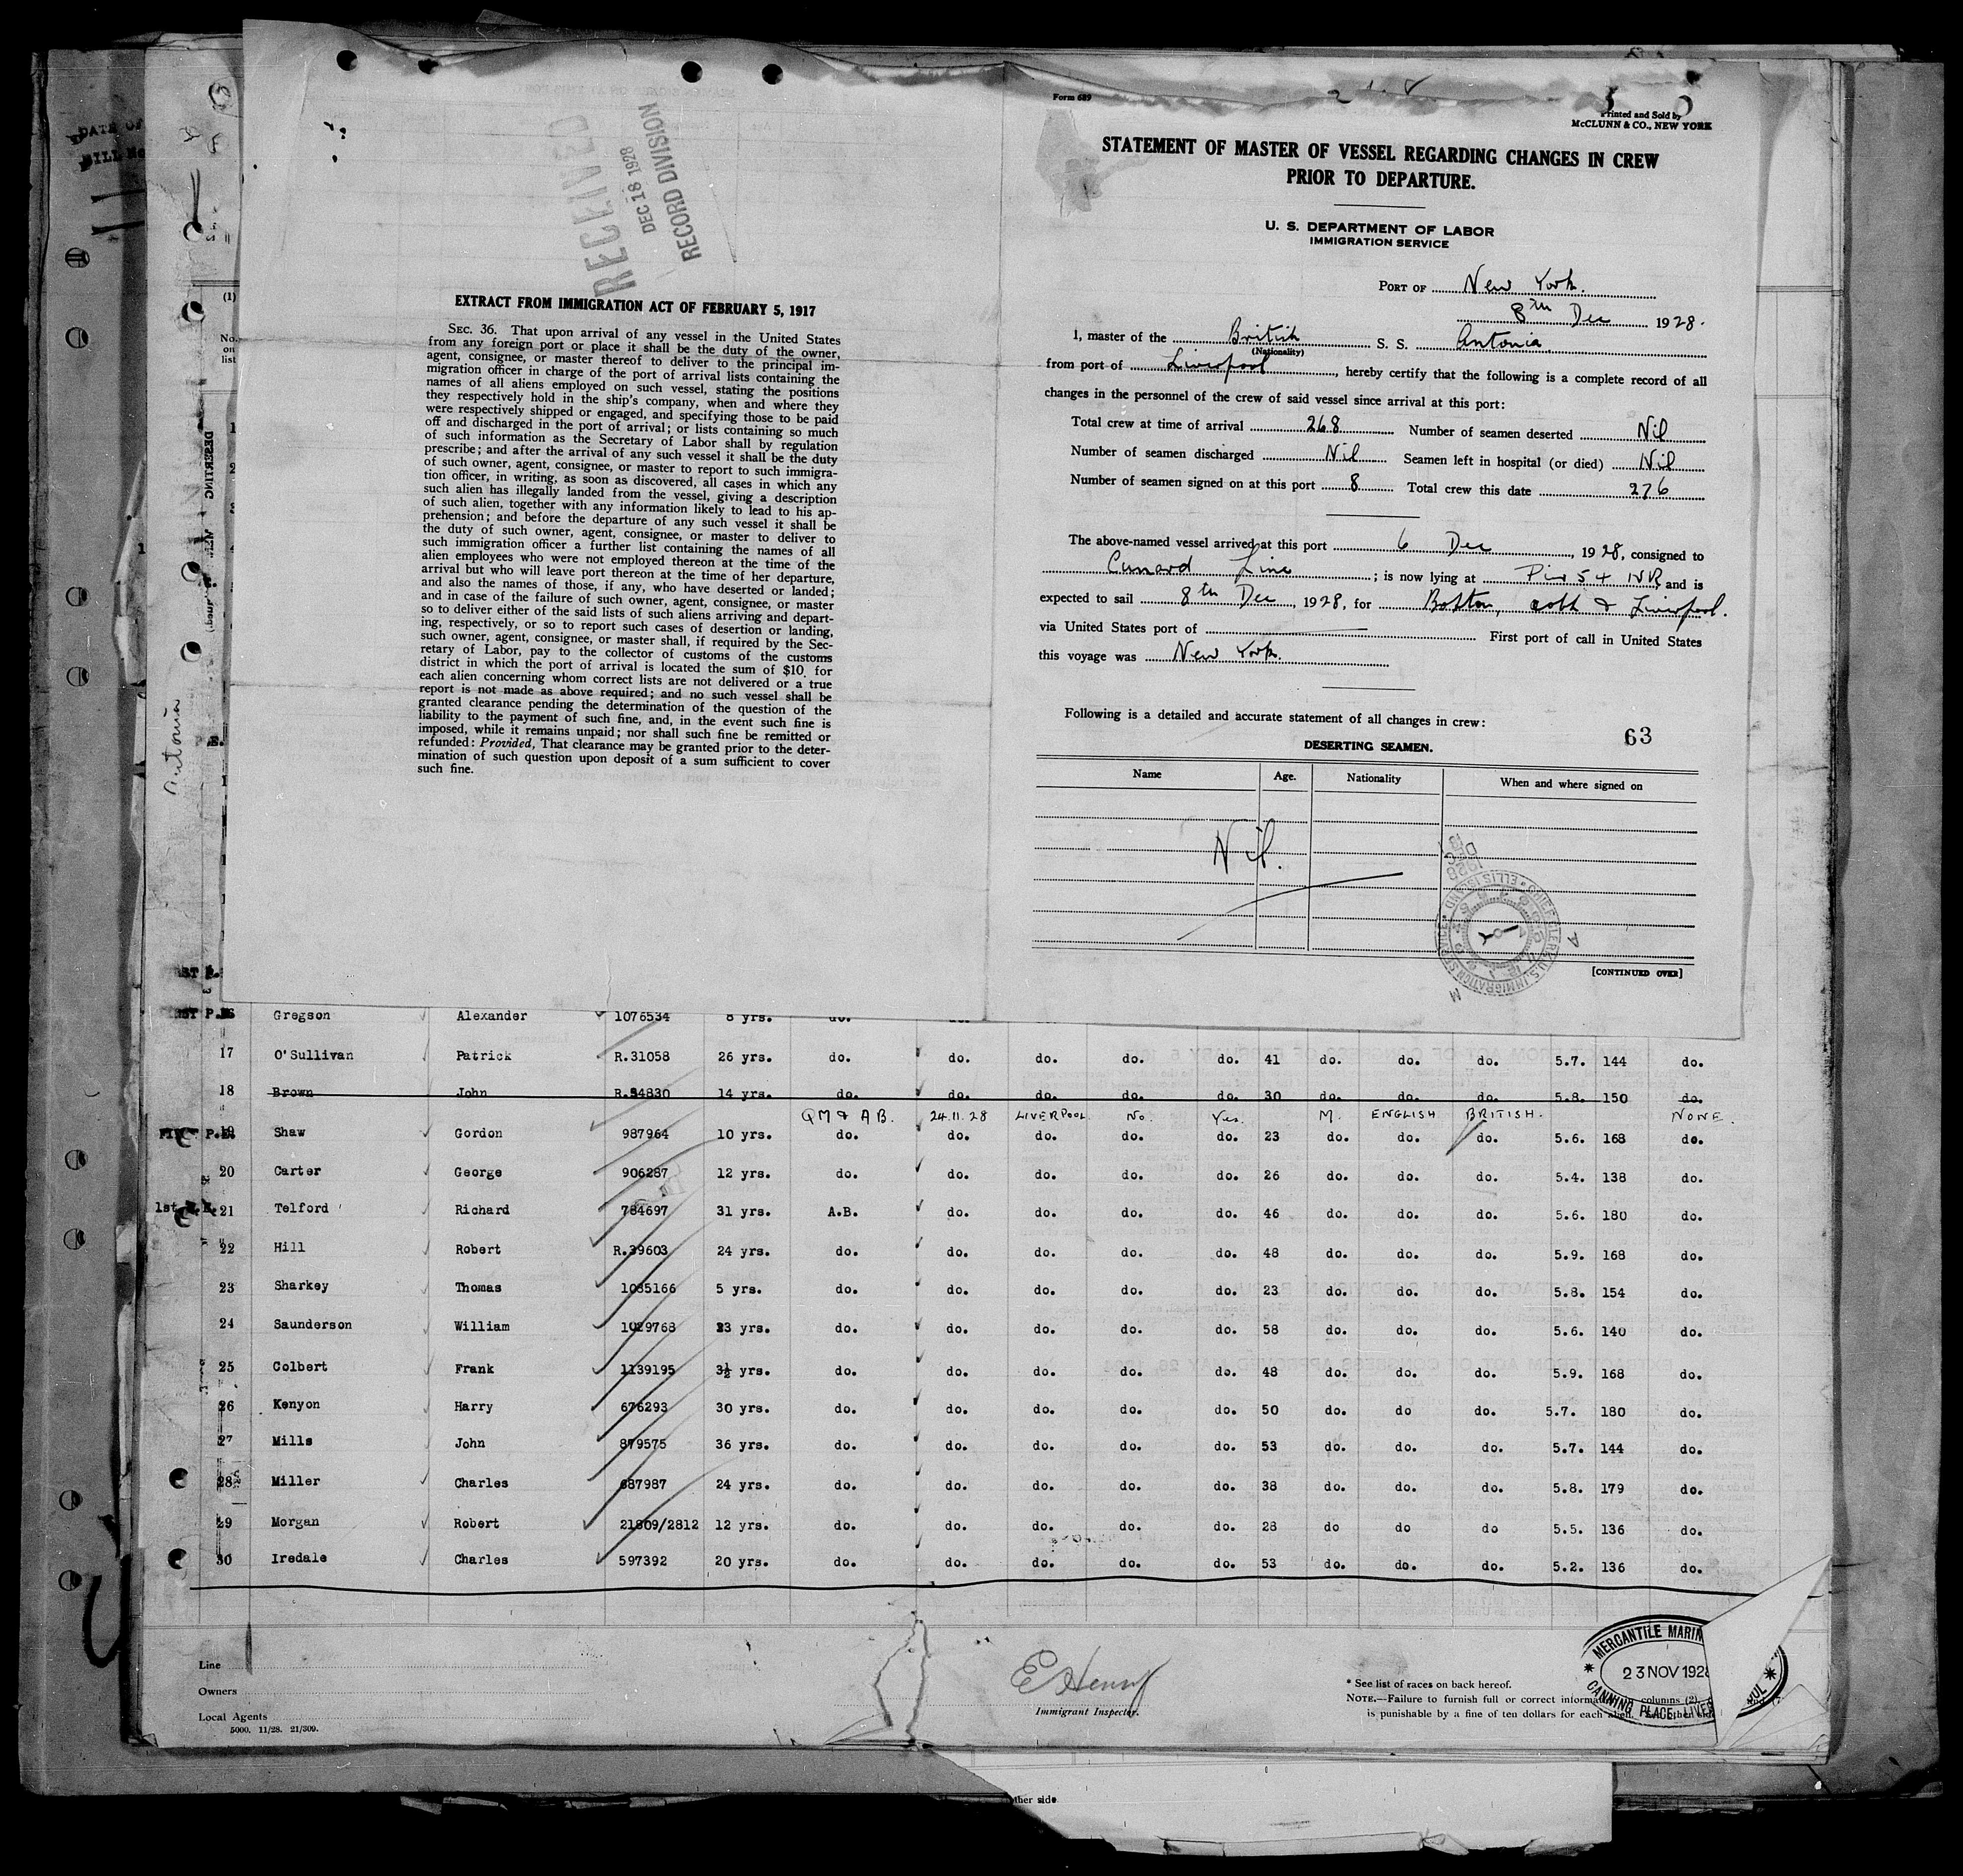 DATE OF
RECEIVED
DEC 18 1928
RECORD DIVISION
EXTRACT FROM IMMIGRATION ACT OF FEBRUARY 5, 1917
SEC. 36. That upon arrival of any vessel in the United States
from any foreign port or place it shall be the duty of the owner,
agent, consignee, or master thereof to deliver to the principal im-
migration officer in charge of the port of arrival lists containing the
names of all aliens employed on such vessel, stating the positions
they respectively hold in the ship's company, when and where they
were respectively shipped or engaged, and specifying those to be paid
off and discharged in the port of arrival; or lists containing so much
of such information as the Secretary of Labor shall by regulation
prescribe; and after the arrival of any such vessel it shall be the duty
of such owner, agent, consignee, or master to report to such immigra-
tion officer, in writing, as soon as discovered, all cases in which any
such alien has illegally landed from the vessel, giving a description
of such alien, together with any information likely to lead to his ap-
prehension; and before the departure of any such vessel it shall be
the duty of such owner, agent, consignee, or master to deliver to
such immigration officer a further list containing the names of all
alien employees who were not employed thereon at the time of the
arrival but who will leave port thereon at the time of her departure,
and also the names of those, if any, who have deserted or landed;
and in case of the failure of such owner, agent, consignee, or master
so to deliver either of the said lists of such aliens arriving and depart-
ing, respectively, or so to report such cases of desertion or landing,
such owner, agent, consignee, or master shall, if required by the Sec-
retary of Labor, pay to the collector of customs of the customs
district in which the port of arrival is located the sum of $10 for
each alien concerning whom correct lists are not delivered or a true
report is not made as above required; and no such vessel shall be
granted clearance pending the determination of the question of the
liability to the payment of such fine, and, in the event such fine is
imposed, while it remains unpaid; nor shall such fine be remitted or
refunded: Provided, That clearance may be granted prior to the deter-
mination of such question upon deposit of a sum sufficient to cover
such fine.
Antonia
Form 689
Printed and Sold by
McCLUNN & CO., NEW YORK
STATEMENT OF MASTER OF VESSEL REGARDING CHANGES IN CREW
PRIOR TO DEPARTURE.
U. S. DEPARTMENT OF LABOR
IMMIGRATION SERVICE
PORT OF New York.
8th Dec 1928.
I, master of the British S. S. Antonia
(Nationality)
from port of Liverpool, hereby certify that the following is a complete record of all
changes in the personnel of the crew of said vessel since arrival at this port:
Total crew at time of arrival 268 Number of seamen deserted Nil
Number of seamen discharged Nil Seamen left in hospital (or died) Nil
Number of seamen signed on at this port 8 Total crew this date 276
The above-named vessel arrived at this port 6 Dec, 1928, consigned to
Cunard Line; is now lying at Pier 54 NR and is
expected to sail 8th Dec, 1928, for Boston, Cobh & Liverpool.
via United States port of First port of call in United States
this voyage was New York.
Following is a detailed and accurate statement of all changes in crew:
63
DESERTING SEAMEN.
Name Age. Nationality When and where signed on
Nil.
[CONTINUED OVER]
Gregson Alexander 1076534 8 yrs. do.
17 O'Sullivan Patrick R.31058 26 yrs. do. do. do. do. do. 41 do. do. do. 5.7. 144 do.
18 Brown John R.54830 14 yrs. do. do. do. do. do. 30 do. do. do. 5.8. 150 do.
QM & AB. 24.11.28 LIVERPOOL. No. Yes. M. ENGLISH BRITISH. NONE.
19 Shaw Gordon 987964 10 yrs. do. do. do. do. do. 23 do. do. do. 5.6. 168 do.
20 Carter George 906287 12 yrs. do. do. do. do. do. 26 do. do. do. 5.4. 138 do.
21 Telford Richard 784697 31 yrs. A.B. do. do. do. do. 46 do. do. do. 5.6. 180 do.
22 Hill Robert R.39603 24 yrs. do. do. do. do. do. 48 do. do. do. 5.9. 168 do.
23 Sharkey Thomas 1035166 5 yrs. do. do. do. do. do. 23 do. do. do. 5.8. 154 do.
24 Saunderson William 1029768 23 yrs. do. do. do. do. do. 58 do. do. do. 5.6. 140 do.
25 Colbert Frank 1139195 3½ yrs. do. do. do. do. do. 48 do. do. do. 5.9. 168 do.
26 Kenyon Harry 676293 30 yrs. do. do. do. do. do. 50 do. do do. 5.7. 180 do.
27 Mills John 879575 36 yrs. do. do. do. do. do. 53 do. do. do. 5.7. 144 do.
28 Miller Charles 687987 24 yrs. do. do. do. do. do. 38 do. do. do. 5.8. 179 do.
29 Morgan Robert 21809/2812 12 yrs. do. do. do. do. do. 28 do do do 5.5. 136 do.
30 Iredale Charles 597392 20 yrs. do. do. do. do. do. 53 do. do. do. 5.2. 136 do.
Line
Owners
Local Agents
5000. 11/28. 21/309.
E Henry
Immigrant Inspector.
* See list of races on back hereof.
NOTE.—Failure to furnish full or correct information columns (2)
is punishable by a fine of ten dollars for each alien.
MERCANTILE MARIN
23 NOV 1928
CANNING PLACE, LIVE
other side